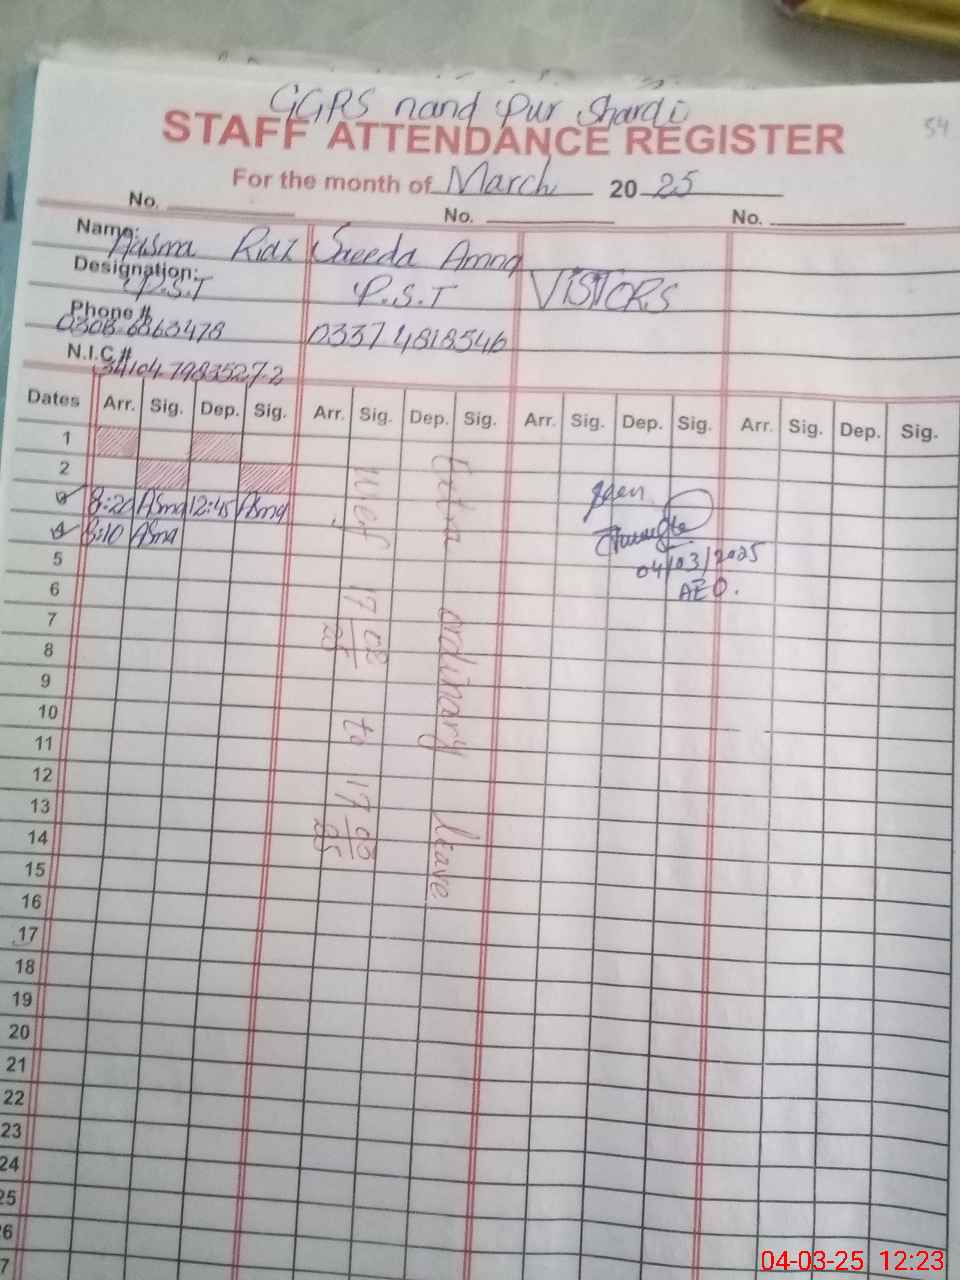 GGPS nand pur Shardi
STAFF ATTENDANCE REGISTER
54
For the month of March 2025
No. No. No.
Name: Aasma Riaz Saeeda Amna
Designation: P.S.T P.S.T VISITORS
Phone # 0308-6863478 0337 4818546
N.I.C.# 34104-7983527-2
Dates Arr. Sig. Dep. Sig. Arr. Sig. Dep. Sig. Arr. Sig. Dep. Sig. Arr. Sig. Dep. Sig.
1
2
3 8:20 Asma 12:45 Asma
4 8:10 Asma
Seen
04/03/2025
AEO.
w.e.f 17 02 25 to 17 05 25
Extra ordinary leave
5
6
7
8
9
10
11
12
13
14
15
16
17
18
19
20
21
22
23
24
25
6
7
04-03-25 12:23